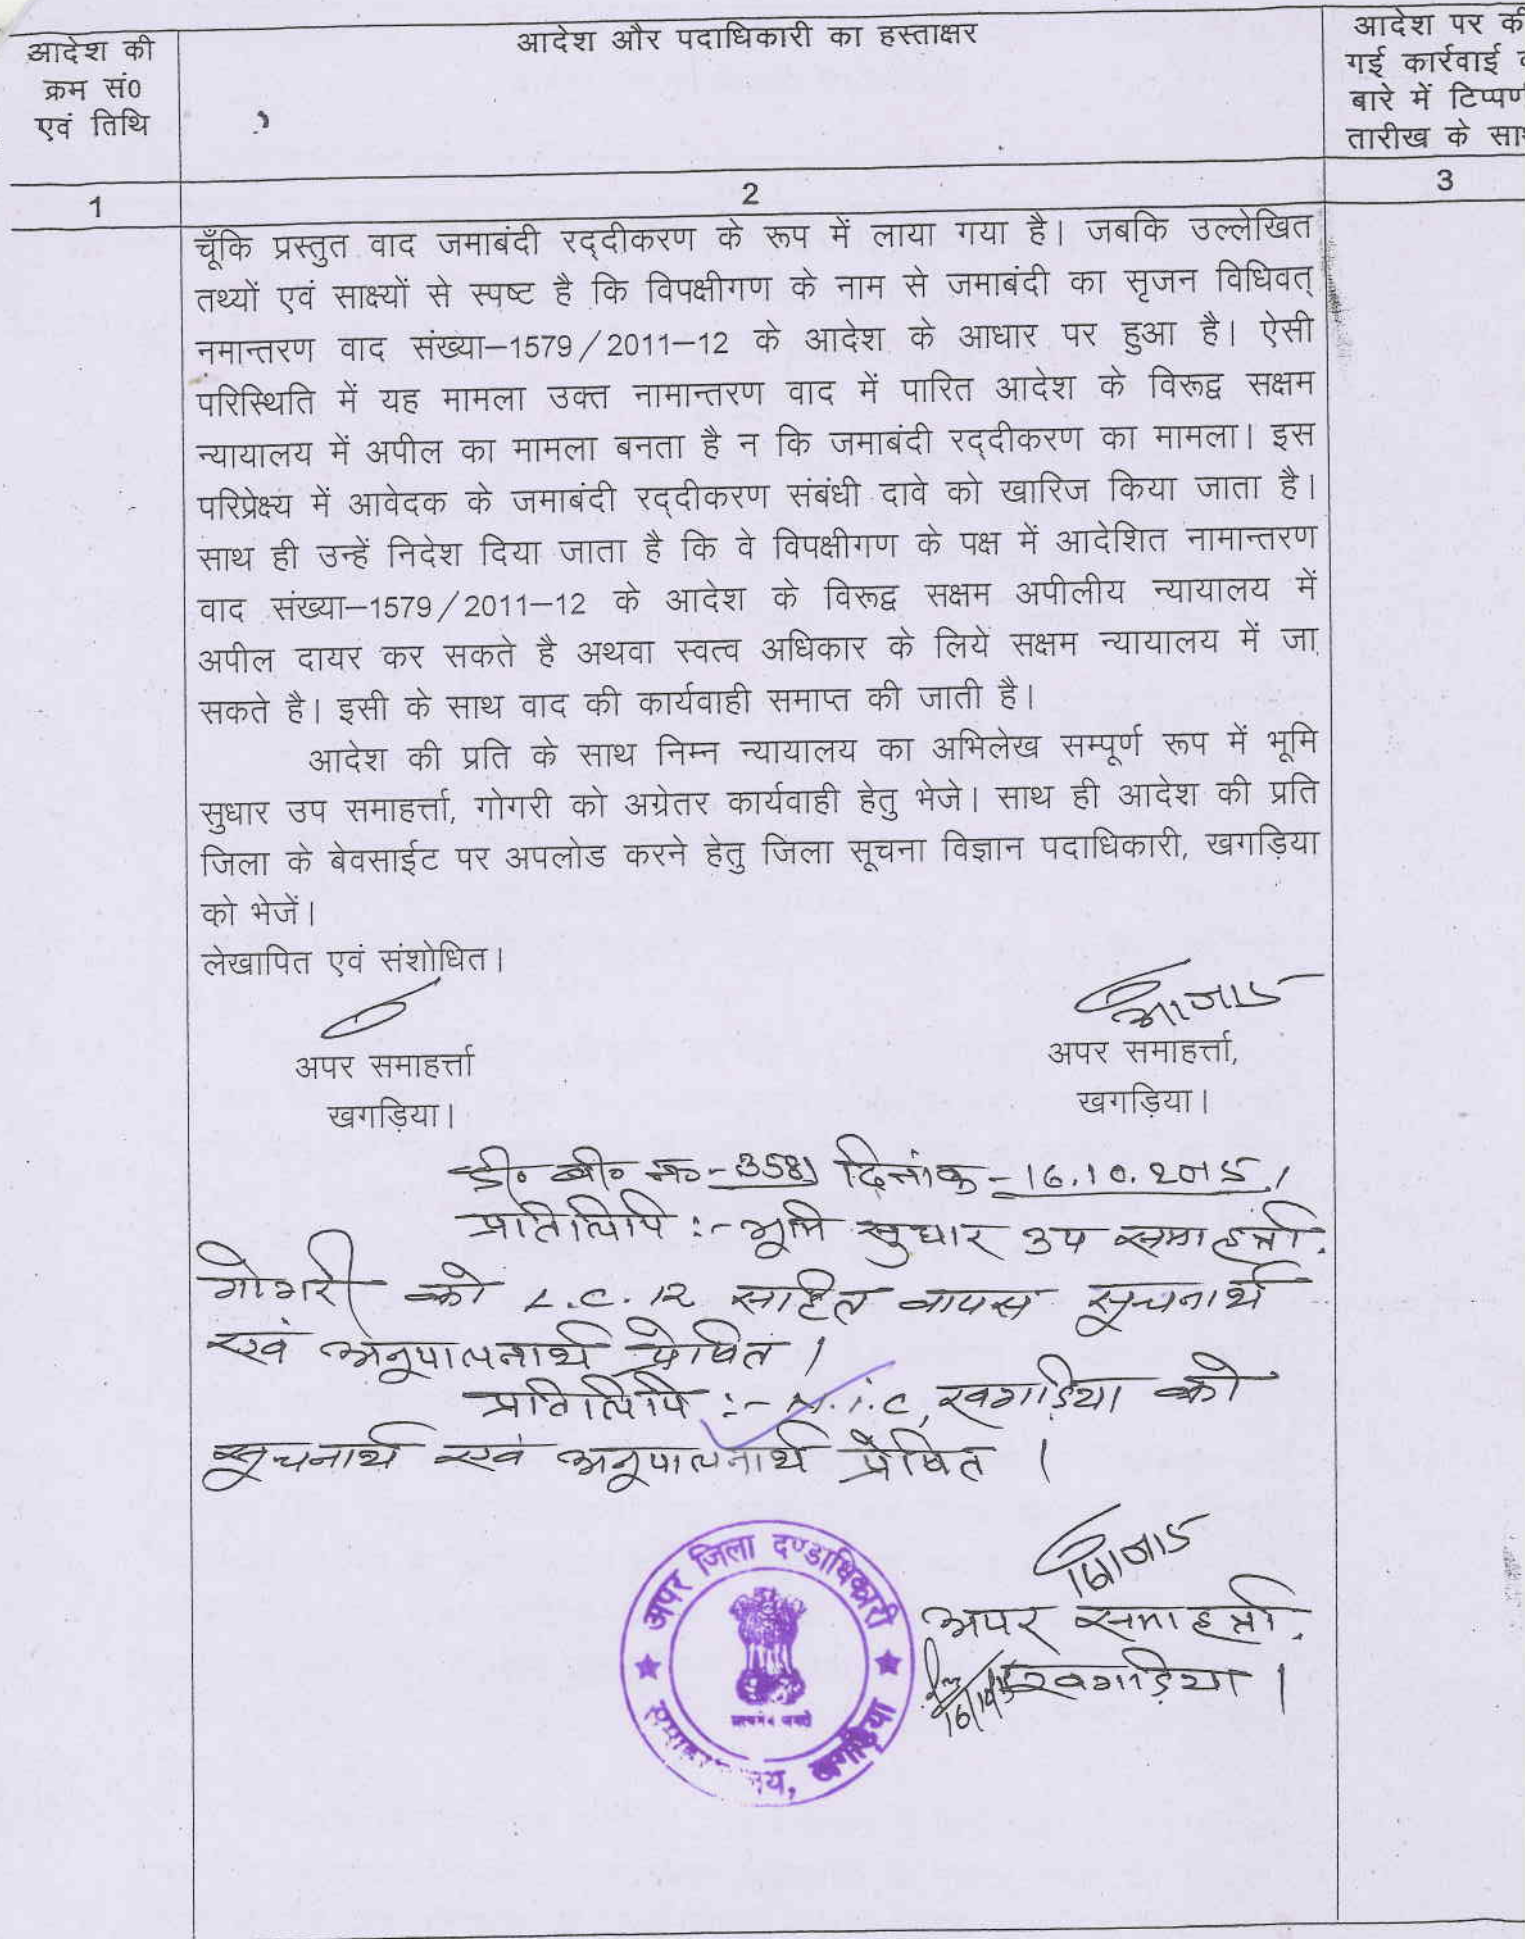 आदेश की
क्रम सं0
एवं तिथि
आदेश और पदाधिकारी का हस्ताक्षर
आदेश पर की
गई कार्रवाई
बारे में टिप्पण
तारीख के साथ
1
2
3
चूँकि प्रस्तुत वाद जमाबंदी रद्दीकरण के रूप में लाया गया है। जबकि उल्लेखित
तथ्यों एवं साक्ष्यों से स्पष्ट है कि विपक्षीगण के नाम से जमाबंदी का सृजन विधिवत्
नमान्तरण वाद संख्या–1579/2011–12 के आदेश के आधार पर हुआ है। ऐसी
परिस्थिति में यह मामला उक्त नामान्तरण वाद में पारित आदेश के विरूद्व सक्षम
न्यायालय में अपील का मामला बनता है न कि जमाबंदी रद्दीकरण का मामला। इस
परिप्रेक्ष्य में आवेदक के जमाबंदी रद्दीकरण संबंधी दावे को खारिज किया जाता है।
साथ ही उन्हें निदेश दिया जाता है कि वे विपक्षीगण के पक्ष में आदेशित नामान्तरण
वाद संख्या–1579/2011–12 के आदेश के विरूद्व सक्षम अपीलीय न्यायालय में
अपील दायर कर सकते है अथवा स्वत्व अधिकार के लिये सक्षम न्यायालय में जा
सकते है। इसी के साथ वाद की कार्यवाही समाप्त की जाती है।
आदेश की प्रति के साथ निम्न न्यायालय का अभिलेख सम्पूर्ण रूप में भूमि
सुधार उप समाहर्त्ता, गोगरी को अग्रेतर कार्यवाही हेतु भेजे। साथ ही आदेश की प्रति
जिला के बेवसाईट पर अपलोड करने हेतु जिला सूचना विज्ञान पदाधिकारी, खगड़िया
को भेजें।
लेखापित एवं संशोधित।
अपर समाहर्त्ता
खगड़िया।
अपर समाहर्त्ता,
खगड़िया।
डी० बी० नं०- 3581 दिनांक - 16.10.2015।
प्रतिलिपि :- भूमि सुधार उप समाहर्त्ता,
गोगरी को L.C.R सहित वापस सूचनार्थ
एवं अनुपालनार्थ प्रेषित।
प्रतिलिपि :- N.I.C, खगड़िया को
सूचनार्थ एवं अनुपालनार्थ प्रेषित।
अपर समाहर्त्ता,
खगड़िया।
अपर जिला दण्डाधिकारी
खगड़िया